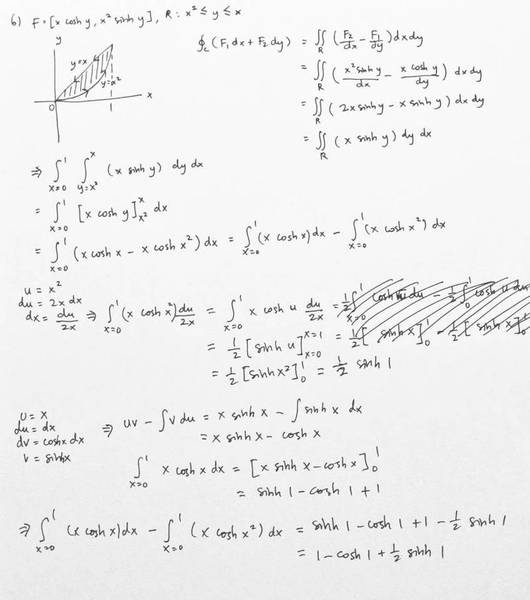 6) F = [x cosh y, x² sinh y], R : x² ≤ y ≤ x
y
y=x
y=x²
0
1
x
∮_C (F₁dx + F₂dy) = ∬_R (F₂/dx - F₁/dy) dx dy
= ∬_R (x² sinh y/dx - x cosh y/dy) dx dy
= ∬_R (2x sinh y - x sinh y) dx dy
= ∬_R (x sinh y) dy dx
⇒ ∫_{x=0}^{1} ∫_{y=x²}^{x} (x sinh y) dy dx
= ∫_{x=0}^{1} [x cosh y]_{x²}^{x} dx
= ∫_{x=0}^{1} (x cosh x - x cosh x²) dx = ∫_{x=0}^{1} (x cosh x) dx - ∫_{x=0}^{1} (x cosh x²) dx
u = x²
du = 2x dx
dx = du/2x ⇒ ∫_{x=0}^{1} (x cosh x²) du/2x = ∫_{x=0}^{1} x cosh u du/2x
= 1/2 [sinh u]_{x=0}^{x=1}
= 1/2 [sinh x²]_0^1 = 1/2 sinh 1
u = x
du = dx
dv = cosh x dx
v = sinh x
⇒ uv - ∫v du = x sinh x - ∫ sinh x dx
= x sinh x - cosh x
∫_{x=0}^{1} x cosh x dx = [x sinh x - cosh x]_0^1
= sinh 1 - cosh 1 + 1
⇒ ∫_{x=0}^{1} (x cosh x) dx - ∫_{x=0}^{1} (x cosh x²) dx = sinh 1 - cosh 1 + 1 - 1/2 sinh 1
= 1 - cosh 1 + 1/2 sinh 1